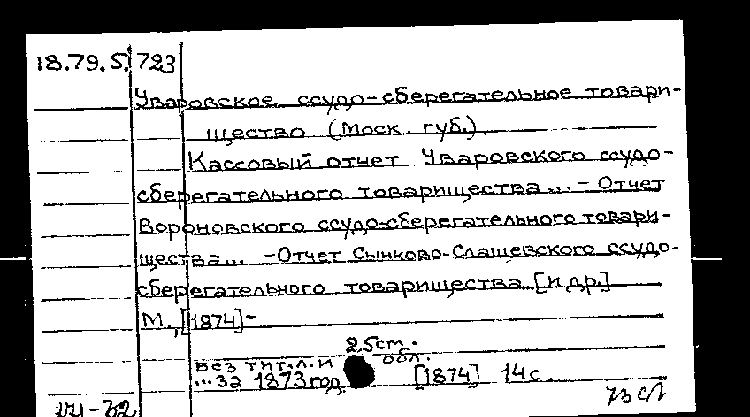 18.79.5.723
Уваровское ссудо-сберегательное товари-
щество (Моск. губ.)
Кассовый отчет Уваровского ссудо-
сберегательного товарищества... - Отчет
Вороновского ссудо-сберегательного товари-
щества... - Отчет Сынково-Слащевского ссудо-
сберегательного товарищества [и др.]
М., [1874]-
25см.
Без тит.л. и обл.
...за 1873 год [1874] 14 с.